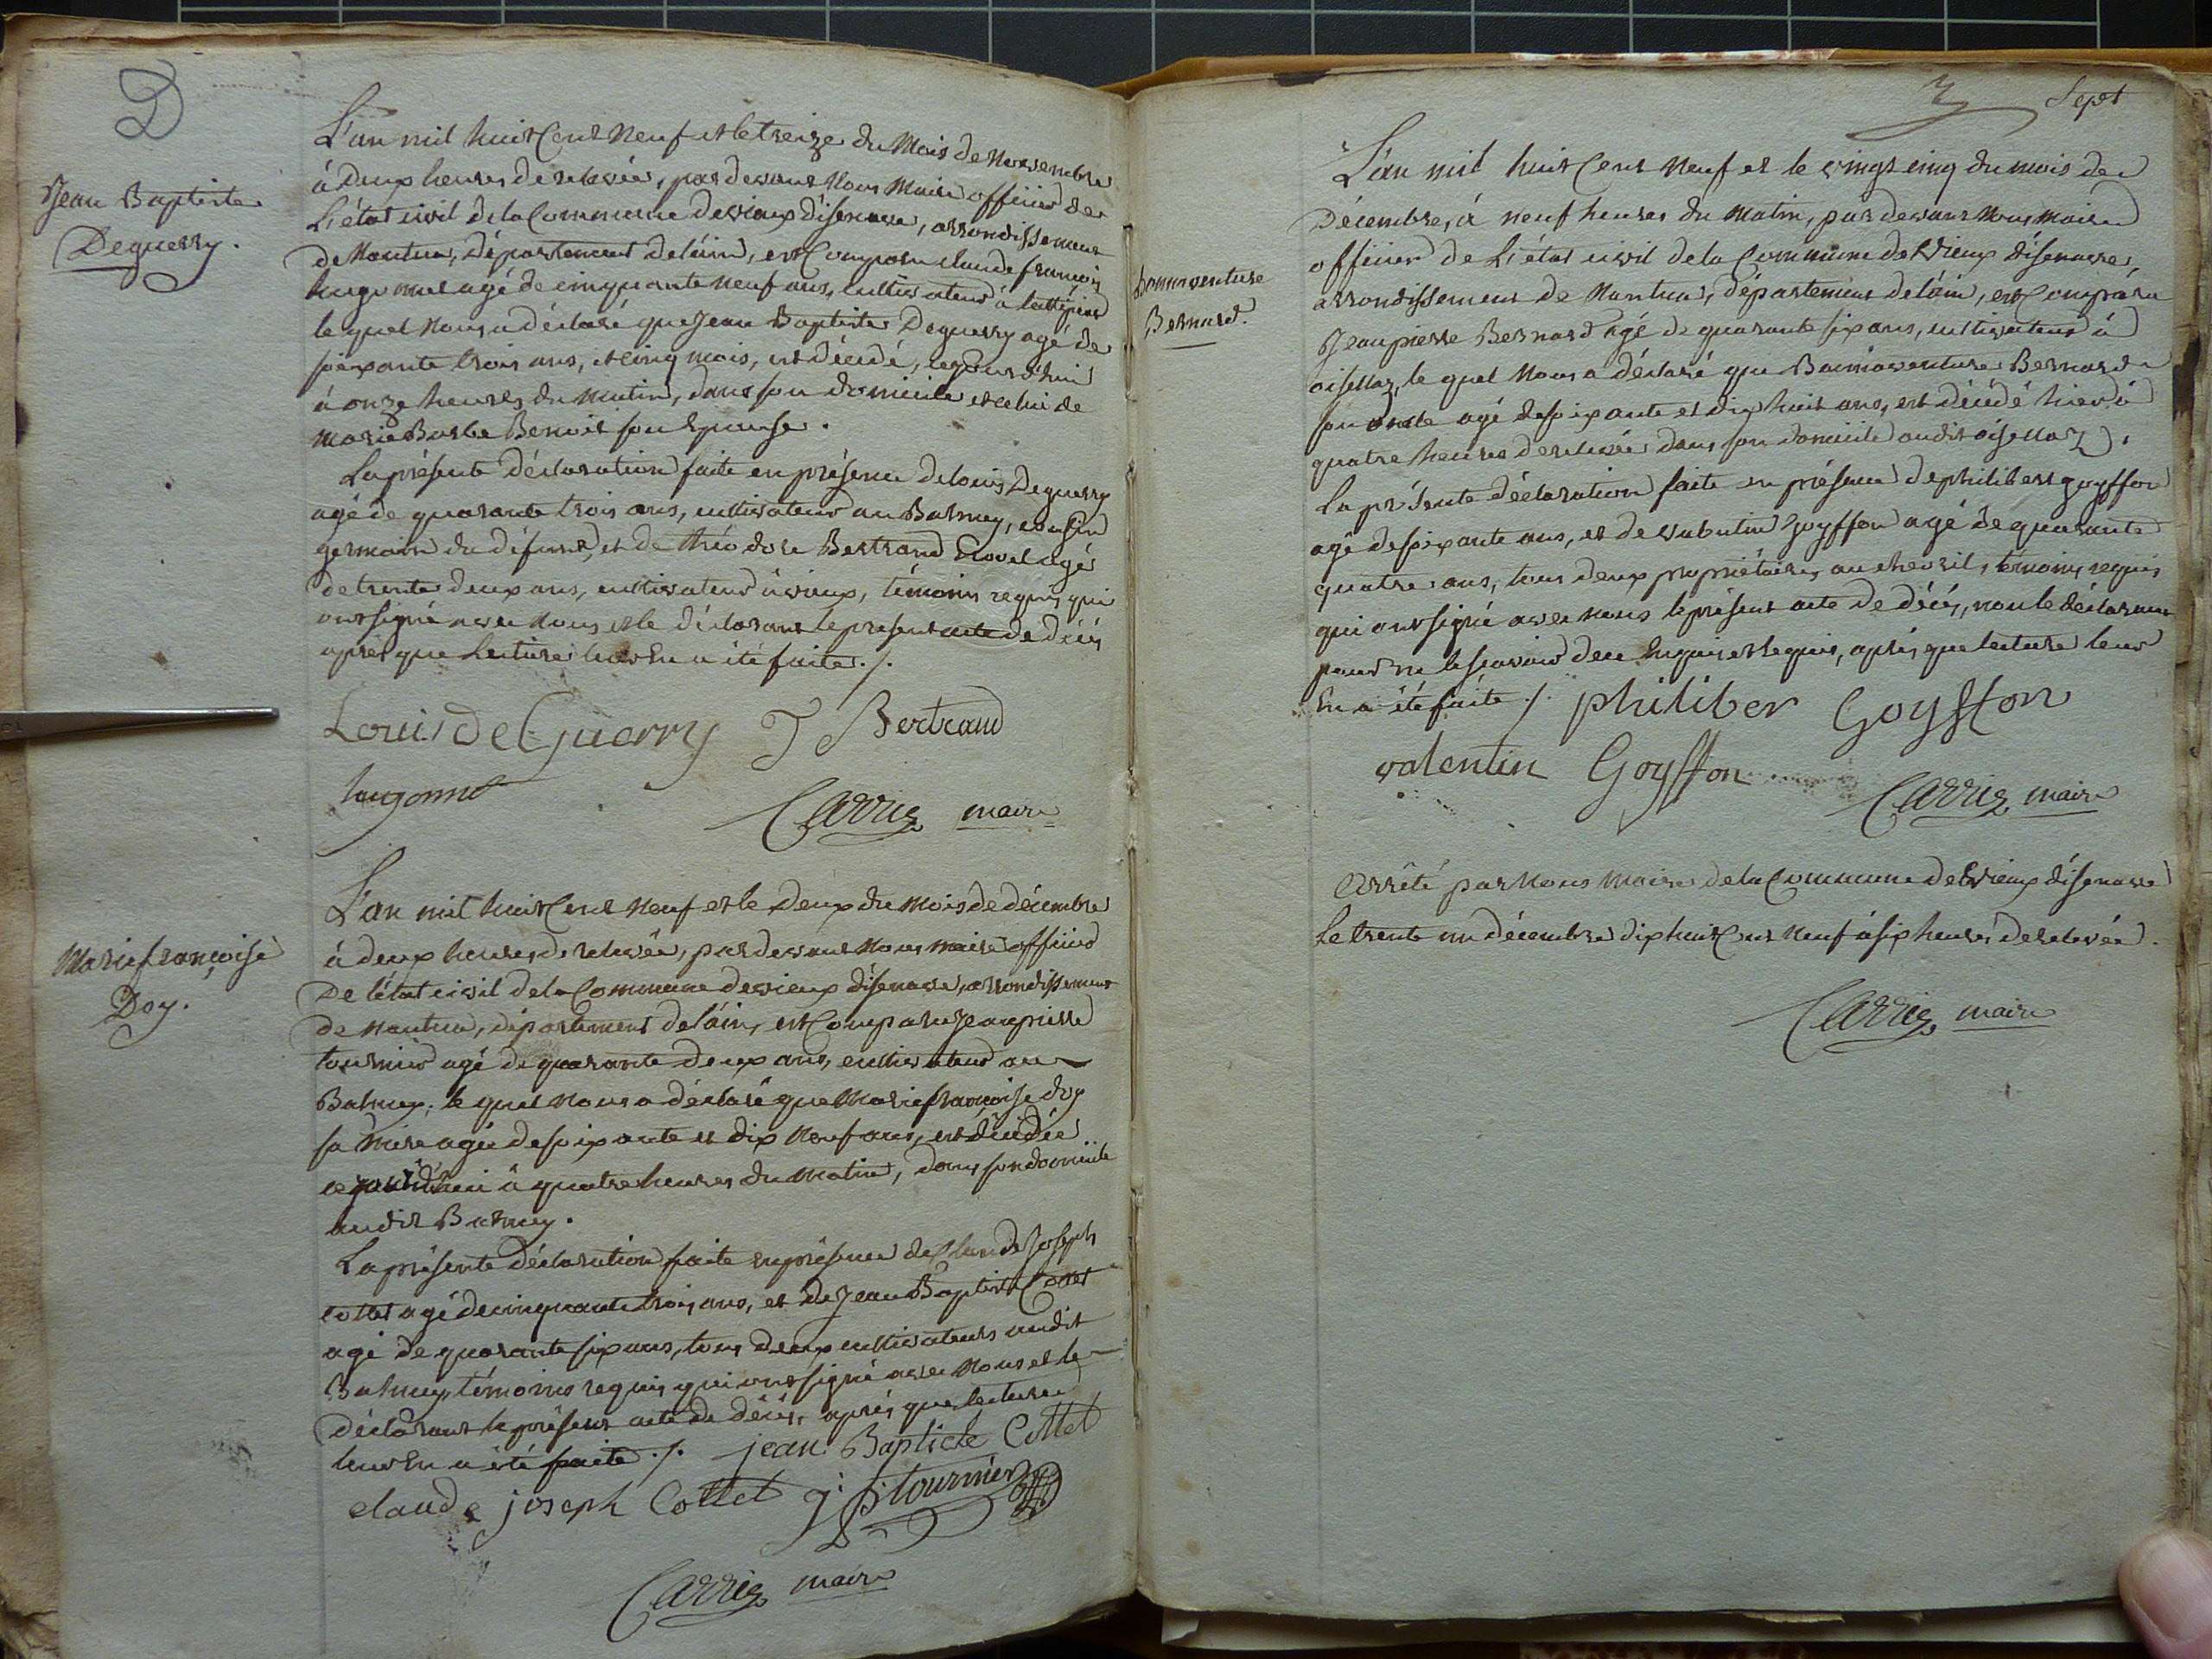 D
Jean Baptiste
Deguerry.
L'an mil huit Cent Neuf et le treize du Mois de Novembre
à Deux heures de relevée, par devant Nous Maire officier de
L'état civil de la Commune de vieux d'isenave, arrondissement
de Nantua, Département de l'ain, est Comparu claude françois
hugonnet agé de cinquante neuf ans, cultivateur à
le quel Nous a déclaré que Jean Baptiste Deguerry agé de
soixante trois ans, et cinq mois, est décédé, cejourd'hui
à onze heures du matin, dans son domicile et celui de
Marie Barbe Benoit son Epouse.
La présente Déclaration faite en présence de louis Deguerry
agé de quarante trois ans, cultivateur au Balmey, cousin
germain du défunt, et de théodore Bertrand agé
de trente deux ans, cultivateur à vieux, témoins requis qui
ont signé avec Nous et le déclarant le présent acte de décès
après que Lecture leur En a été faite ./.
Louis de Guerry T Bertrand
hugonnet
Carrig maire
Marie françoise
Doy.
L'an mil huit Cent Neuf et le Deux du Mois de décembre
à deux heures de relevée, par devant Nous maire officier
De l'état civil de la Commune de vieux d'isenave, arrondissement
de nantua, département de l'ain, est Comparu Jean pierre
tournier agé de quarante deux ans, cultivateur au
Balmey, le quel Nous a déclaré que Marie françoise doy
sa Mère agée de soixante et dix Neuf ans, est décédée
cejourd'hui à quatre heures du Matin, dans son domicile
audit Balmey.
La présente Déclaration faite en présence de Claude Joseph
cottet agé de cinquante trois ans, et de Jean Baptiste Cottet
agé de quarante six ans, tous deux cultivateurs audit
Balmey, témoins requis qui ont signé avec Nous et le
Déclarant le présent acte de décès, après que lecture
leur En a été faite ./. jean Baptiste Cottet
claude joseph Cottet j. p. tournier
Carrig maire
7 Sept
Bonnaventure
Bernard.
L'an mil huit Cent Neuf et le vingt cinq du mois de
Décembre, à neuf heures du Matin, par devant Nous Maire
officier de L'état civil de la Commune de Vieux d'isenave,
arrondissement de Nantua, département de l'ain, est Comparu
Jean pierre Bernard agé de quarante six ans, cultivateur à
oisellaz, le quel Nous a déclaré que Bonnaventure Bernard
son oncle agé de soixante et dix huit ans, est décédé hier à
quatre heures de relevée dans son domicile audit oisellaz.
La présente déclaration faite en présence de philibert goyffon
agé de soixante ans, et de valentin Goyffon agé de quarante
quatre ans, tous deux propriétaires au chevril, témoins requis
qui ont signé avec nous le présent acte de décès, non le déclarant
pour ne le scavoir de ce Enquis et requis, après que lecture leur
En a été faite ./. philiber Goyffon
valentin Goyffon
Carrig maire
Arrêté par Nous Maire de la Commune de Vieux d'isenave
Le trente un décembre dix huit Cent neuf à six heures de relevée.
Carrig maire